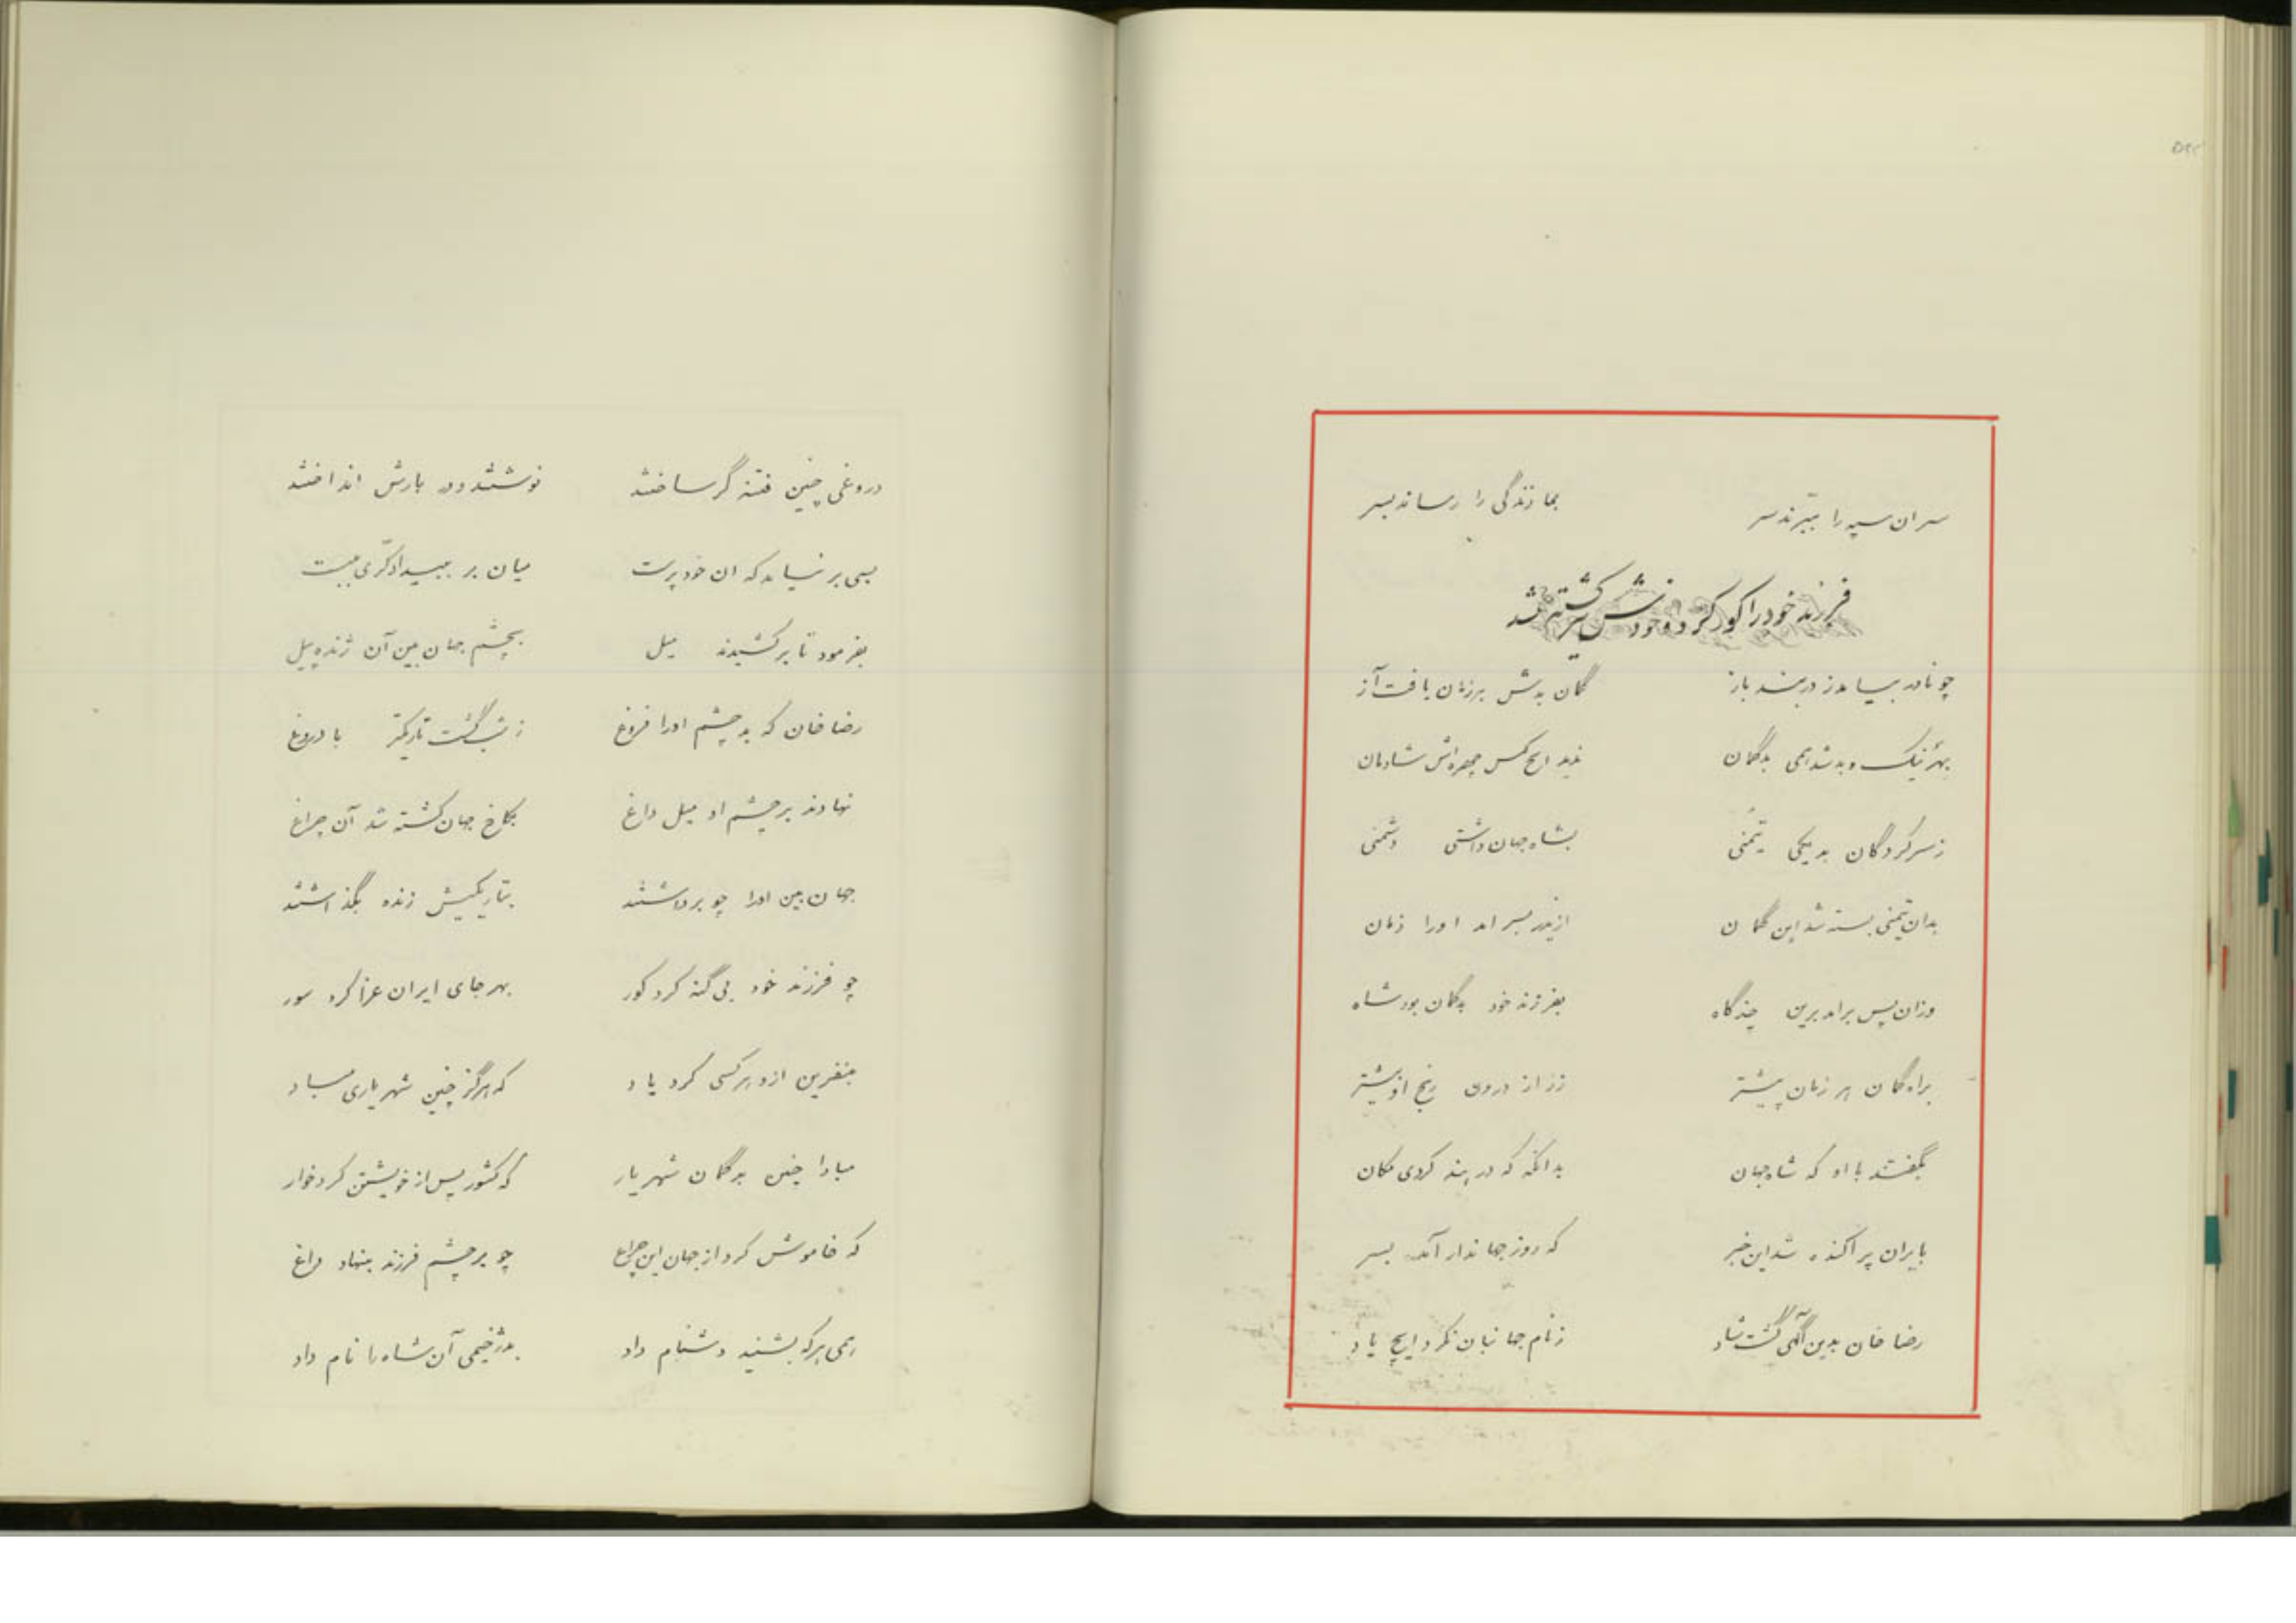 ۵۲۲
سران سپه را ببّرند سر بما زندگی را رساند بسر
فرزند خود را کور کرد و خودش کشته شد
چو نادر بیامد ز دربند باز گمان بدش بر زمان یافت آز
بهر نیک و بد شد همی بدگمان ندید ایچ کس چهره‌اش شادمان
ز سرکردگان بد یکی تیمنی بشاه جهان داشتی دشمنی
بدان تیمنی بسته شد این گمان ازیدر بسر امد اورا زمان
وزان پس برامد برین چندگاه بفرزند خود بدگمان بود شاه
براه گمان هر زمان پیشتر درون رنج از بیشتر
بگفتند با او که شاه جهان بدانگه که در بند کردی مکان
بایران پراکنده شد این خبر که روز جهاندار آمد بسر
رضا خان بدین آگهی گشت شاد ز نام جهانبان نکرد ایچ یاد
دروغی چنین فتنه گر ساختند نوشتند و در بارش انداختند
بسی بر نیامد که ان خودپرست میان بر ببیدادگری ببست
بفرمود تا برکشیدند میل بچشم جهان بین آن ژنده پیل
رضا خان که بد چشم اورا فروغ ز شب گشت تاریکتر با دروغ
نهادند بر چشم او میل داغ بکاخ جهان کشته شد آن چراغ
جهان بین اورا چو برداشتند بتاریکیش زنده بگذاشتند
چو فرزند خود بی گنه کرد کور بهر جای ایران عزا کرد سور
بنفرین ازو هر کسی کرد یاد که هرگز چنین شهریاری مباد
مبادا چنین بدگمان شهریار که کشور پس از خویشتن کرد خوار
که خاموش کرد از جهان این چراغ چو بر چشم فرزند بنهاد داغ
همی هر که بشنید دشنام داد بدژخیمی آن شاه را نام داد